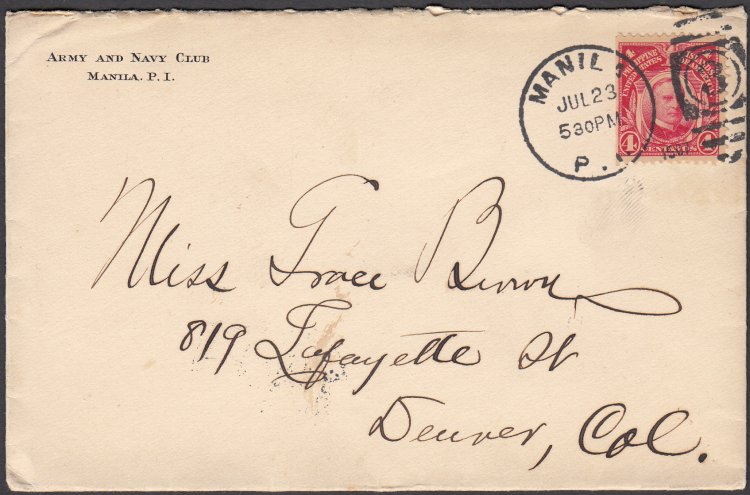 ARMY AND NAVY CLUB
MANILA. P. I.
MANIL
JUL 23
5 30 PM
P.
PHILIPPINE ISLANDS
UNITED STATES OF AMERICA
4 CENTAVOS 4
Miss Grace Brown
819 Lafayette St
Denver, Col.